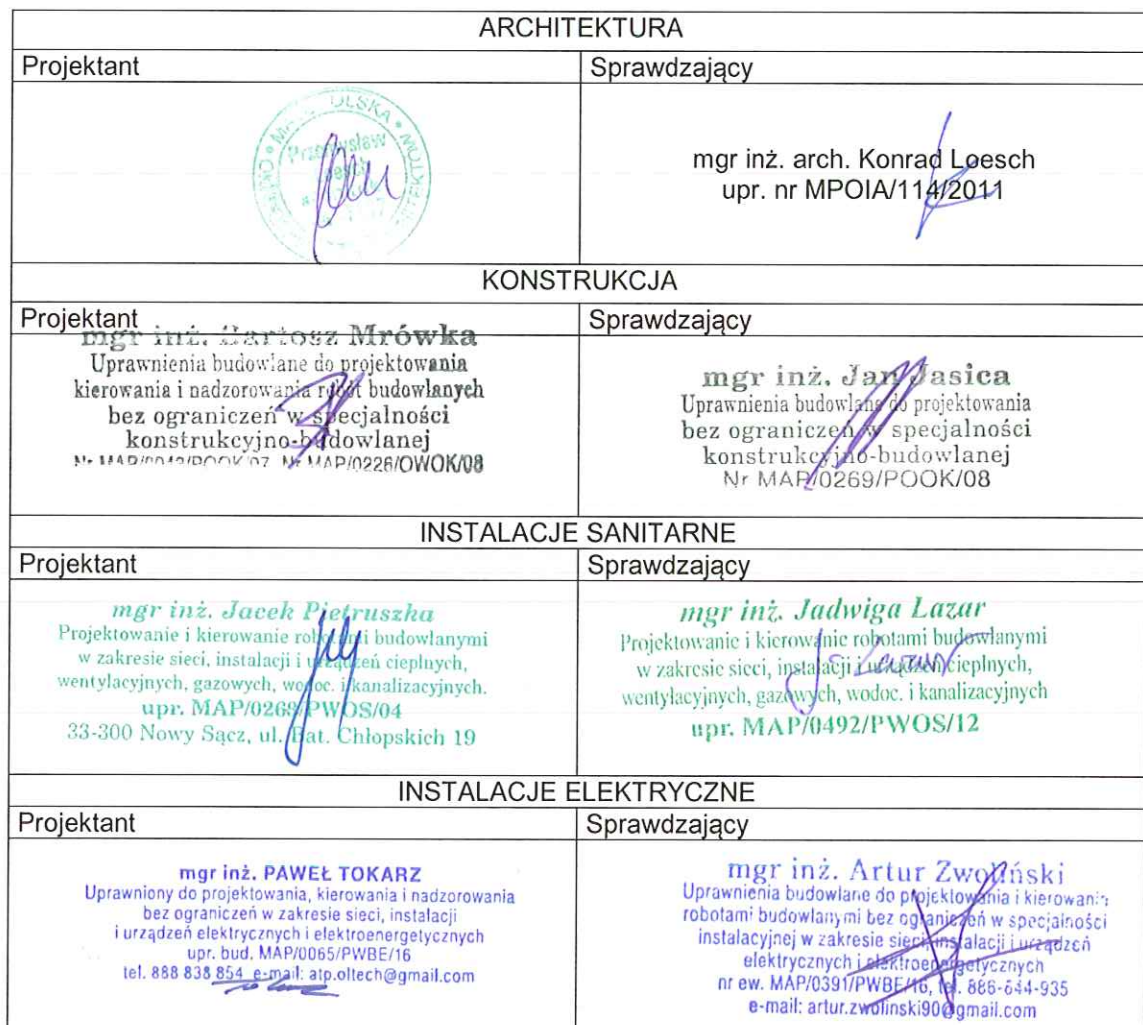 ARCHITEKTURA
Projektant
Sprawdzający
Przemysław
mgr inż. arch. Konrad Loesch
upr. nr MPOIA/114/2011
KONSTRUKCJA
Projektant
Sprawdzający
mgr inż. Bartosz Mrówka
Uprawnienia budowlane do projektowania
kierowania i nadzorowania robót budowlanych
bez ograniczeń w specjalności
konstrukcyjno-budowlanej
Nr MAP/0226/OWOK/08
mgr inż. Jan Jasica
Uprawnienia budowlane do projektowania
bez ograniczeń w specjalności
konstrukcyjno-budowlanej
Nr MAP/0269/POOK/08
INSTALACJE SANITARNE
Projektant
Sprawdzający
mgr inż. Jacek Pietruszka
Projektowanie i kierowanie robotami budowlanymi
w zakresie sieci, instalacji i urządzeń cieplnych,
wentylacyjnych, gazowych, wodoc. i kanalizacyjnych.
upr. MAP/0268/PWOS/04
33-300 Nowy Sącz, ul. Bat. Chłopskich 19
mgr inż. Jadwiga Lazar
Projektowanie i kierowanie robotami budowlanymi
w zakresie sieci, instalacji i urządzeń cieplnych,
wentylacyjnych, gazowych, wodoc. i kanalizacyjnych
upr. MAP/0492/PWOS/12
INSTALACJE ELEKTRYCZNE
Projektant
Sprawdzający
mgr inż. PAWEŁ TOKARZ
Uprawniony do projektowania, kierowania i nadzorowania
bez ograniczeń w zakresie sieci, instalacji
i urządzeń elektrycznych i elektroenergetycznych
upr. bud. MAP/0065/PWBE/16
tel. 888 838 854 e-mail: atp.oltech@gmail.com
mgr inż. Artur Zwoliński
Uprawnienia budowlane do projektowania i kierowania
robotami budowlanymi bez ograniczeń w specjalności
instalacyjnej w zakresie sieci, instalacji i urządzeń
elektrycznych i elektroenergetycznych
nr ew. MAP/0391/PWBE/16, tel. 886-644-935
e-mail: artur.zwolinski90@gmail.com